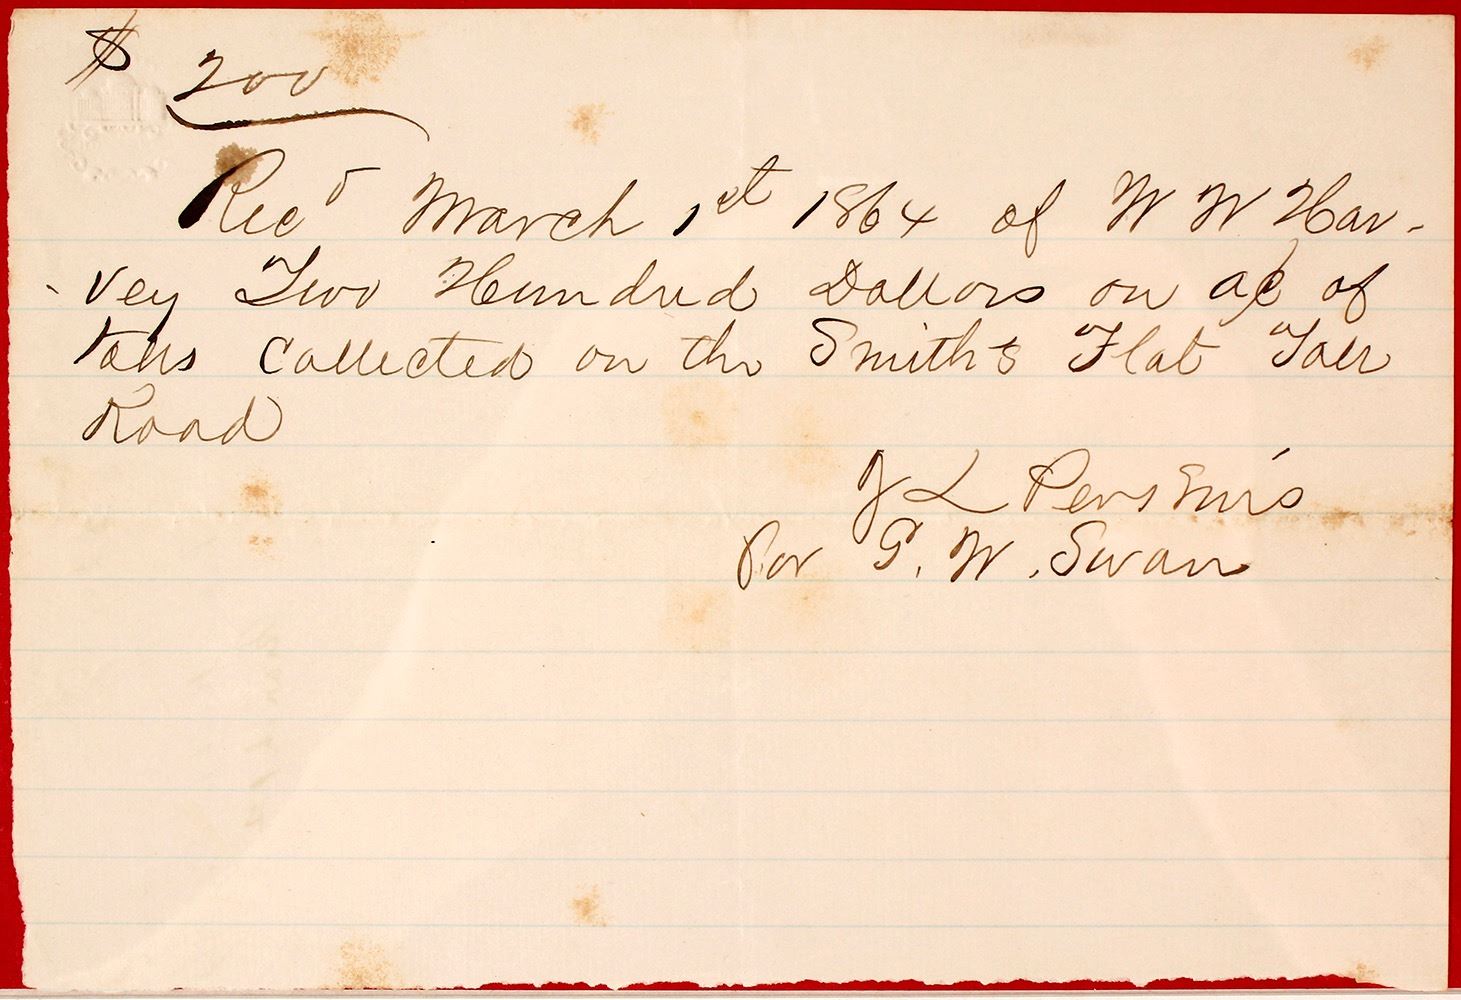 $ 200
Recd March 1st 1864 of W W Har-
-vey Two Hundred Dollars on a/c of
Tolls Collected on the Smith's Flat Toll
Road
J L Perskins
Per G. W. Swan